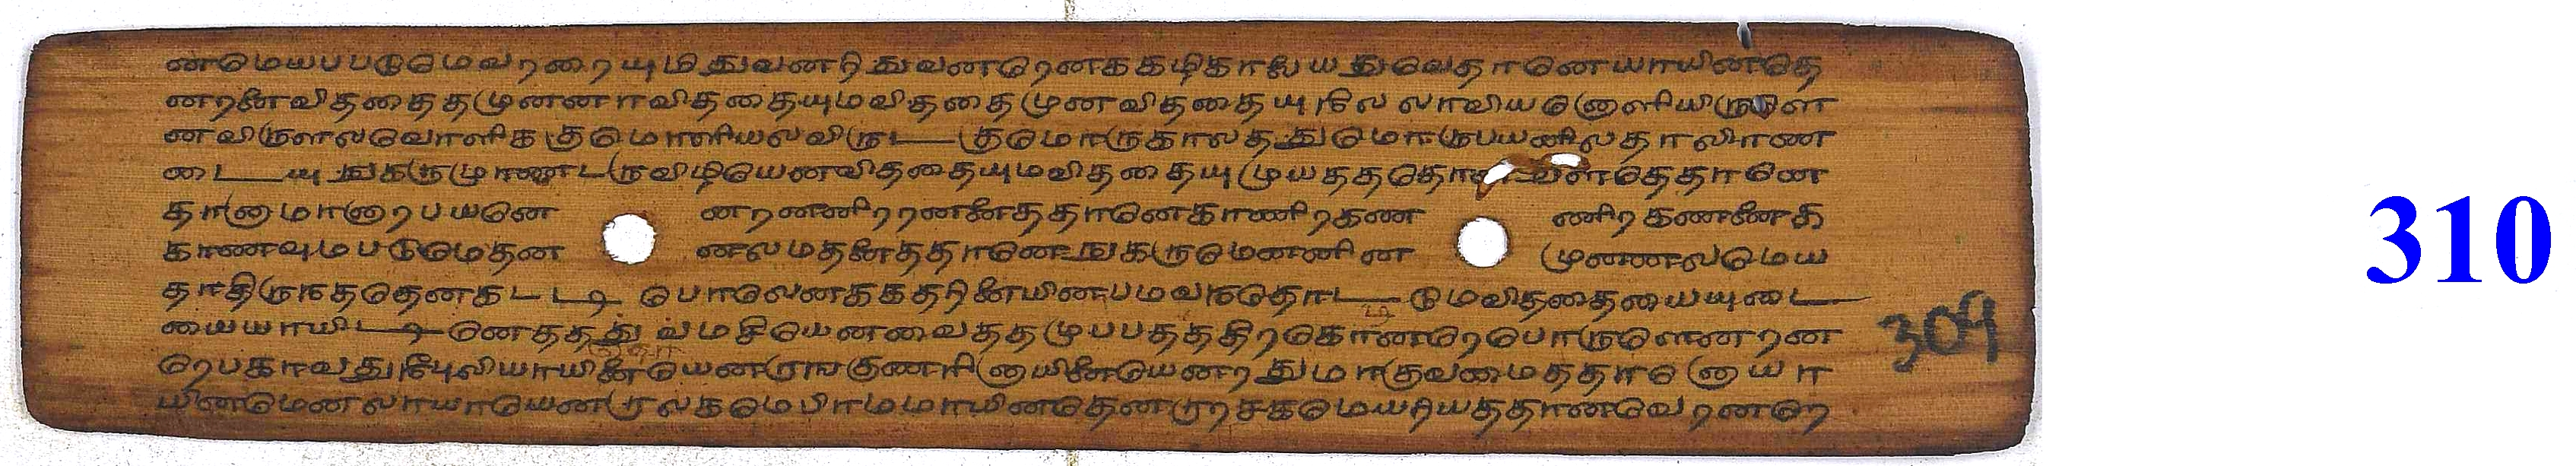 ணமெயபபடுமெவரறையுமிதுவனரிதுவனரெனககழிகாலயதுவெதானெயாயினதெ
னறனைவிததைதமுனனாவிததையுமவிததைமுனவிததையுநிலெலாவியனெளியிருளெ
ணவிருளலவொளிககுமொளியலவிருடகுமொருகாலததுமொருபயனிலதாலிரண
டையுஙகருமுரணடருவிழியெனவிததையுமவிததையுமுயததொ தெதானெ
தானுமானுரபயனெ னறனணிறறனனைததானெகாணிறகண ணிறகணனைத
காணவுமபடுமெதன னலமதனைததானெஙகருமெணணின முணணலமெய
தாதிருநததெனகடடி பொலெனககதரினையினபமவநதொடடுமவிததையையுடை
யையாயிடடினெததது வமசியெனவைததமுபபதததிரகொணரெபொருளெனறன
ரெபகாவதுநீபுலியாயினையெனருஙகுணரினுயினையெயனறதுமாகுவமைததானுயா
யினமெனலாயாயெனருலகமெபிரமமாயினதெனருரசகமெயரியததானவெறனறெ
309
310